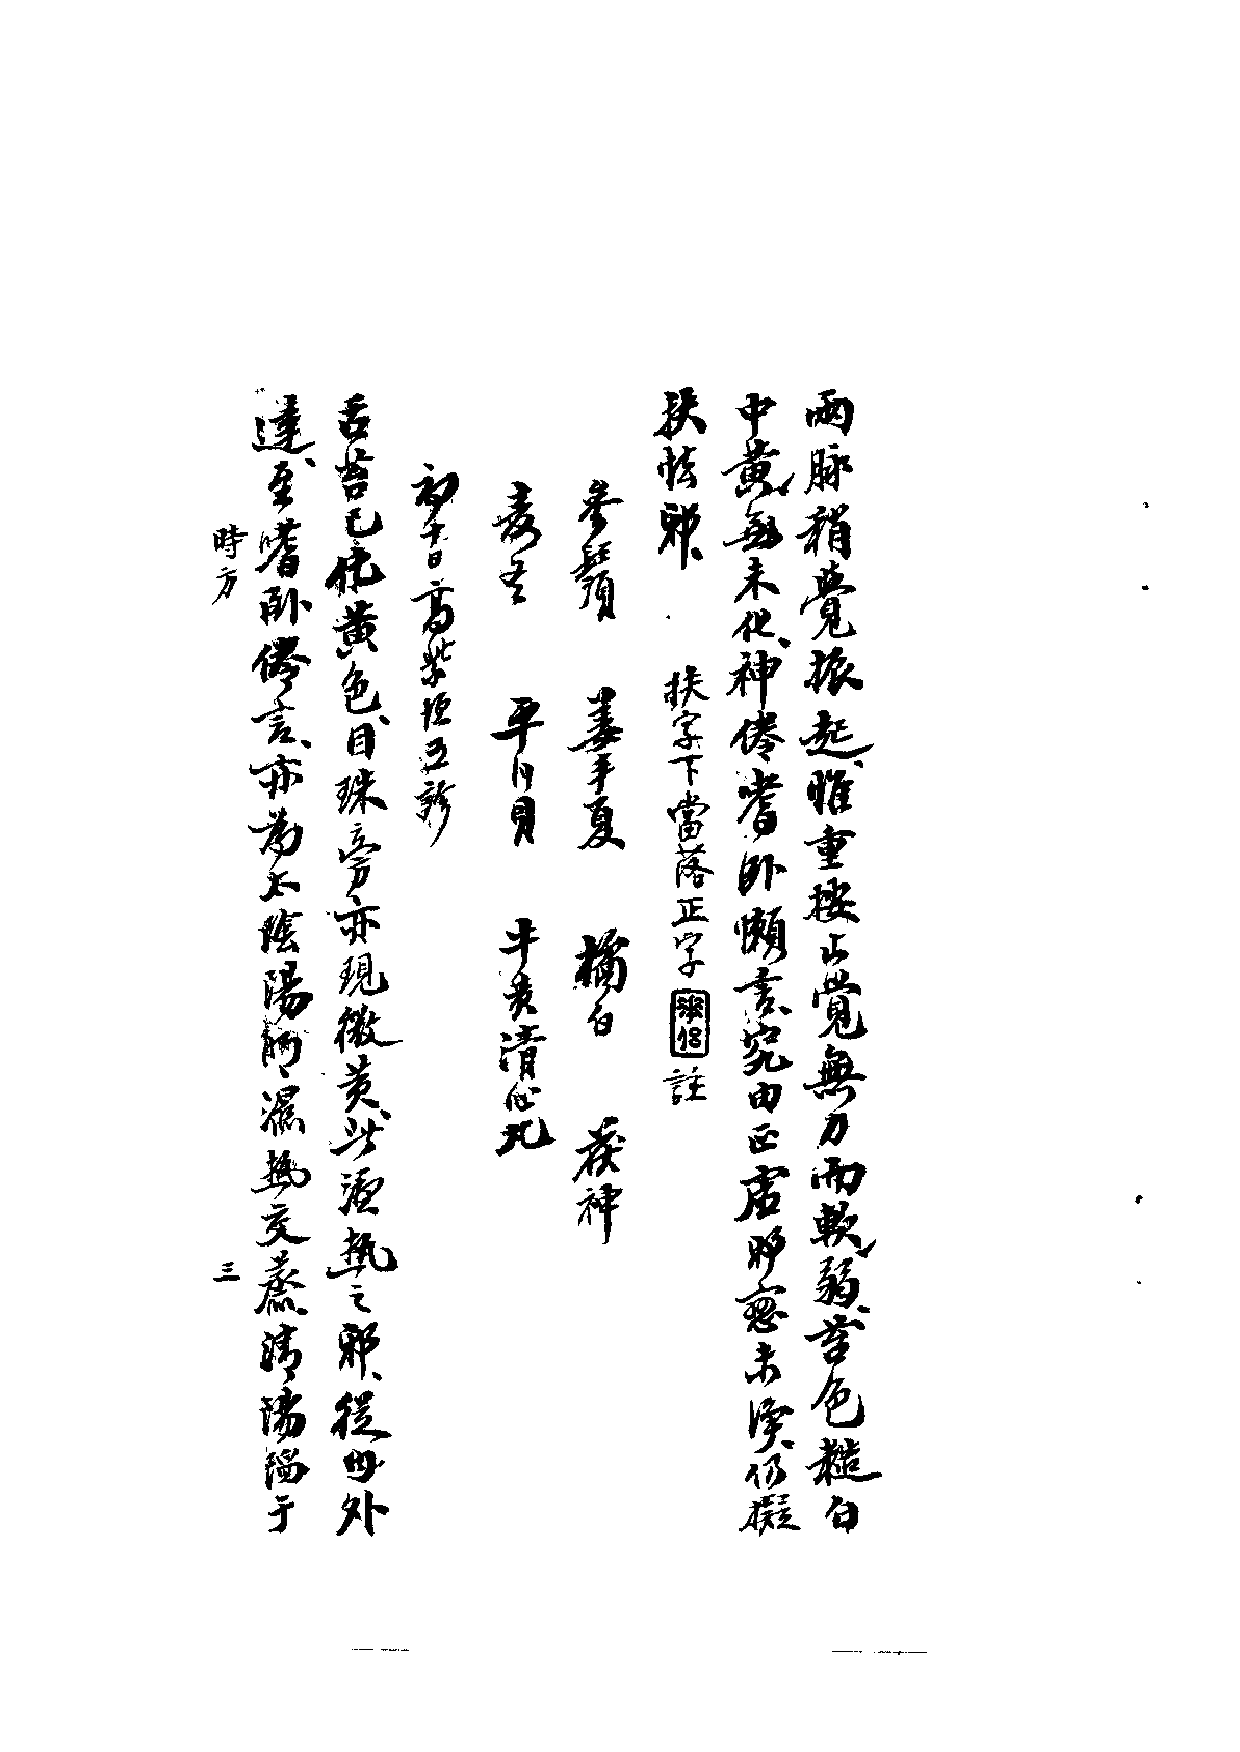 兩脉稍覺振起、惟重按止覺無力而軟弱、苔色糙白
中黃、無未化、神倦嗜卧懶言、究由正虛邪戀未渙、仍擬
扶怯邪、 扶字下當落正字 註
參鬚 姜半夏 橘白 茯神
麦冬 平川貝 牛黃清心丸
初十日高紫垣五診
舌苔已化黃色、目珠旁亦現微黃、此湿熱之邪、從内外
達、至嗜卧倦言、亦為太陰陽明、濕熱交蒸、清陽陷于
時方 三